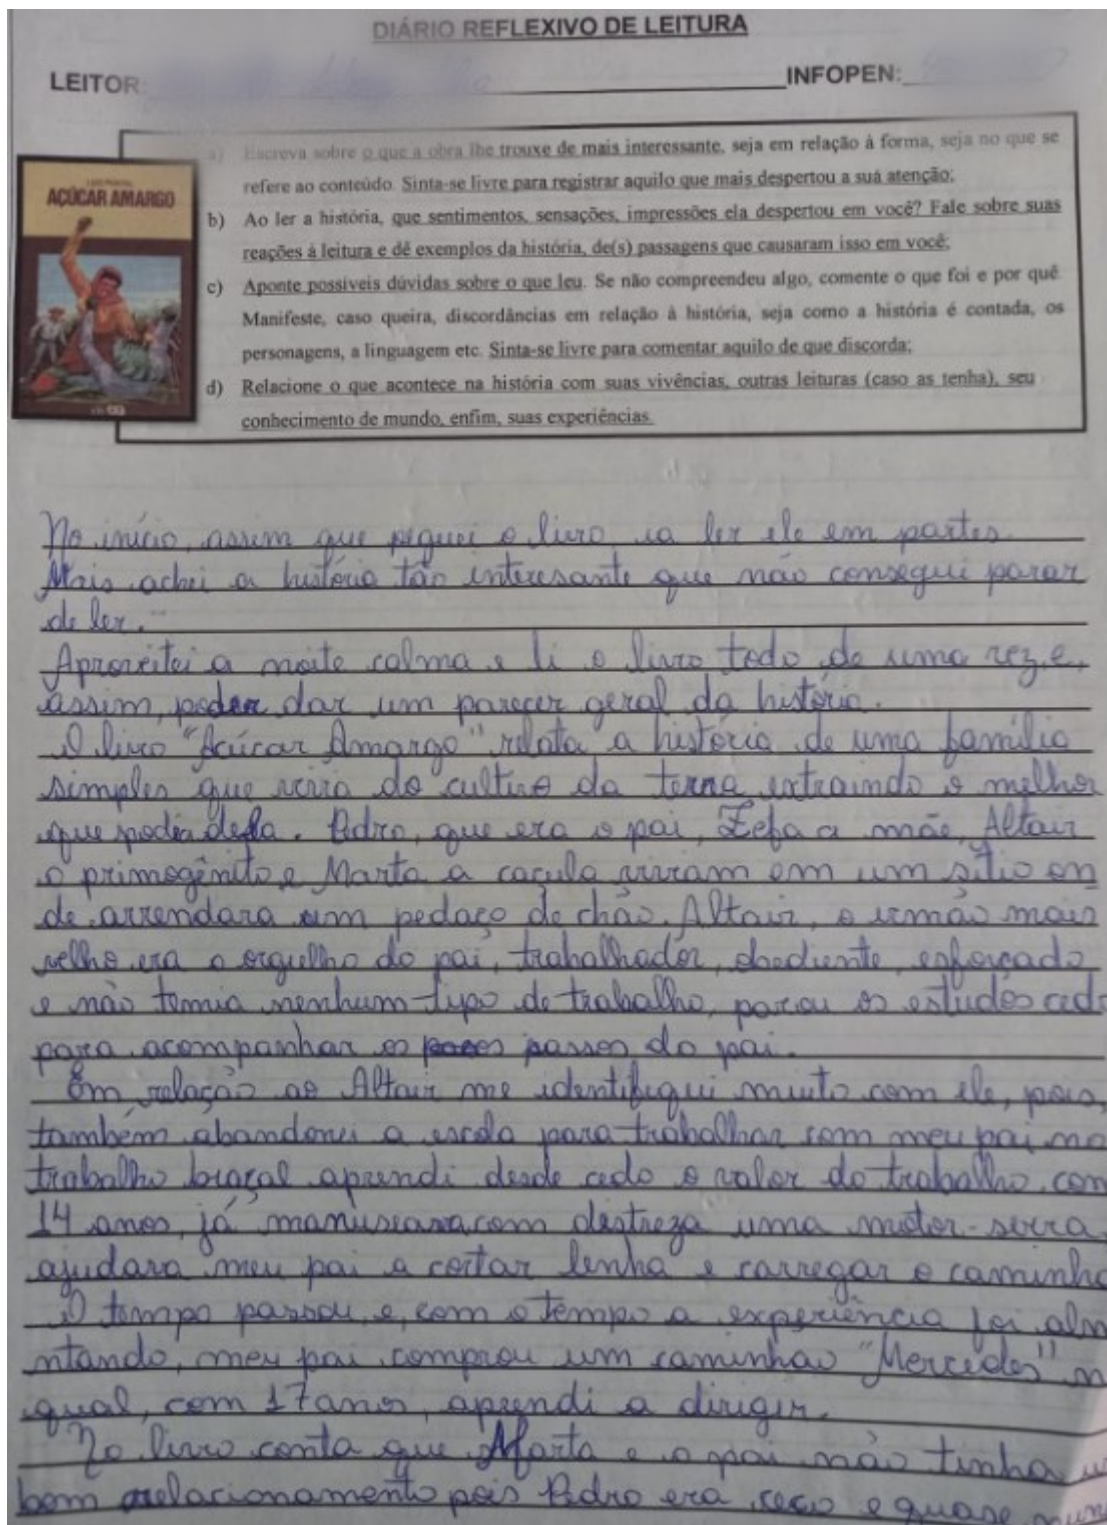 DIÁRIO REFLEXIVO DE LEITURA
LEITOR: INFOPEN:
AÇÚCAR AMARGO
a) Escreva sobre o que a obra lhe trouxe de mais interessante, seja em relação à forma, seja no que se
refere ao conteúdo. Sinta-se livre para registrar aquilo que mais despertou a sua atenção;
b) Ao ler a história, que sentimentos, sensações, impressões ela despertou em você? Fale sobre suas
reações à leitura e dê exemplos da história, de(s) passagens que causaram isso em você;
c) Aponte possíveis dúvidas sobre o que leu. Se não compreendeu algo, comente o que foi e por quê.
Manifeste, caso queira, discordâncias em relação à história, seja como a história é contada, os
personagens, a linguagem etc. Sinta-se livre para comentar aquilo de que discorda;
d) Relacione o que acontece na história com suas vivências, outras leituras (caso as tenha), seu
conhecimento de mundo, enfim, suas experiências.
No início, assim que peguei o livro ia ler ele em partes.
Mais achei a história tão interesante que não consegui parar
de ler.
Aproveitei a noite calma e li o livro todo de uma vez e,
assim, poder dar um parecer geral da história.
O livro "Açúcar Amargo" relata a história de uma família
simples que vivia do cultivo da terra extraindo o melhor
que podia dela. Pedro, que era o pai, Zefa a mãe, Altair
o primogênito e Marta a caçula viviam em um sítio on
de arrendara um pedaço de chão. Altair, o irmão mais
velho era o orgulho do pai, trabalhador, obediente, esforçado
e não temia nenhum tipo de trabalho, parou os estudos cedo
para acompanhar os passos do pai.
Em relação ao Altair me identifiqui muito com ele, pois,
também abandonei a escola para trabalhar com meu pai no
trabalho braçal aprendi desde cedo o valor do trabalho, com
14 anos, já manuseava com destreza uma motor-serra
ajudava meu pai a cortar lenha e carregar o caminhã
O tempo passou, e, com o tempo a experiência foi alm
ntando, meu pai comprou um caminhão "Mercedes" n
qual, com 17 anos, aprendi a dirigir.
No livro conta que Marta e o pai não tinha u
bom relacionamento pois Pedro era seco e quase nun